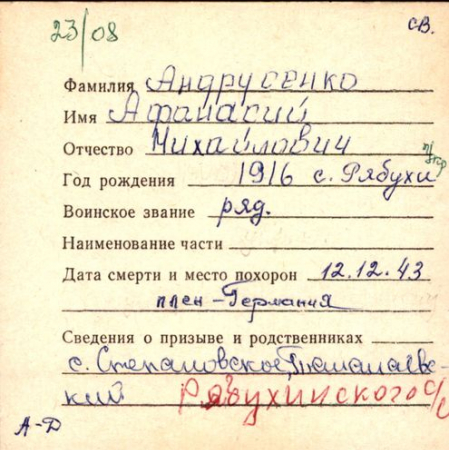 23/08
св.
Фамилия Андрусенко
Имя Афанасий
Отчество Михайлович
Год рождения 1916 с. Рябухи
Воинское звание ряд.
Наименование части
Дата смерти и место похорон 12.12.43
плен-Германия
Сведения о призыве и родственниках
с. Степановское,
кий Рябухинского с/с
А-Д